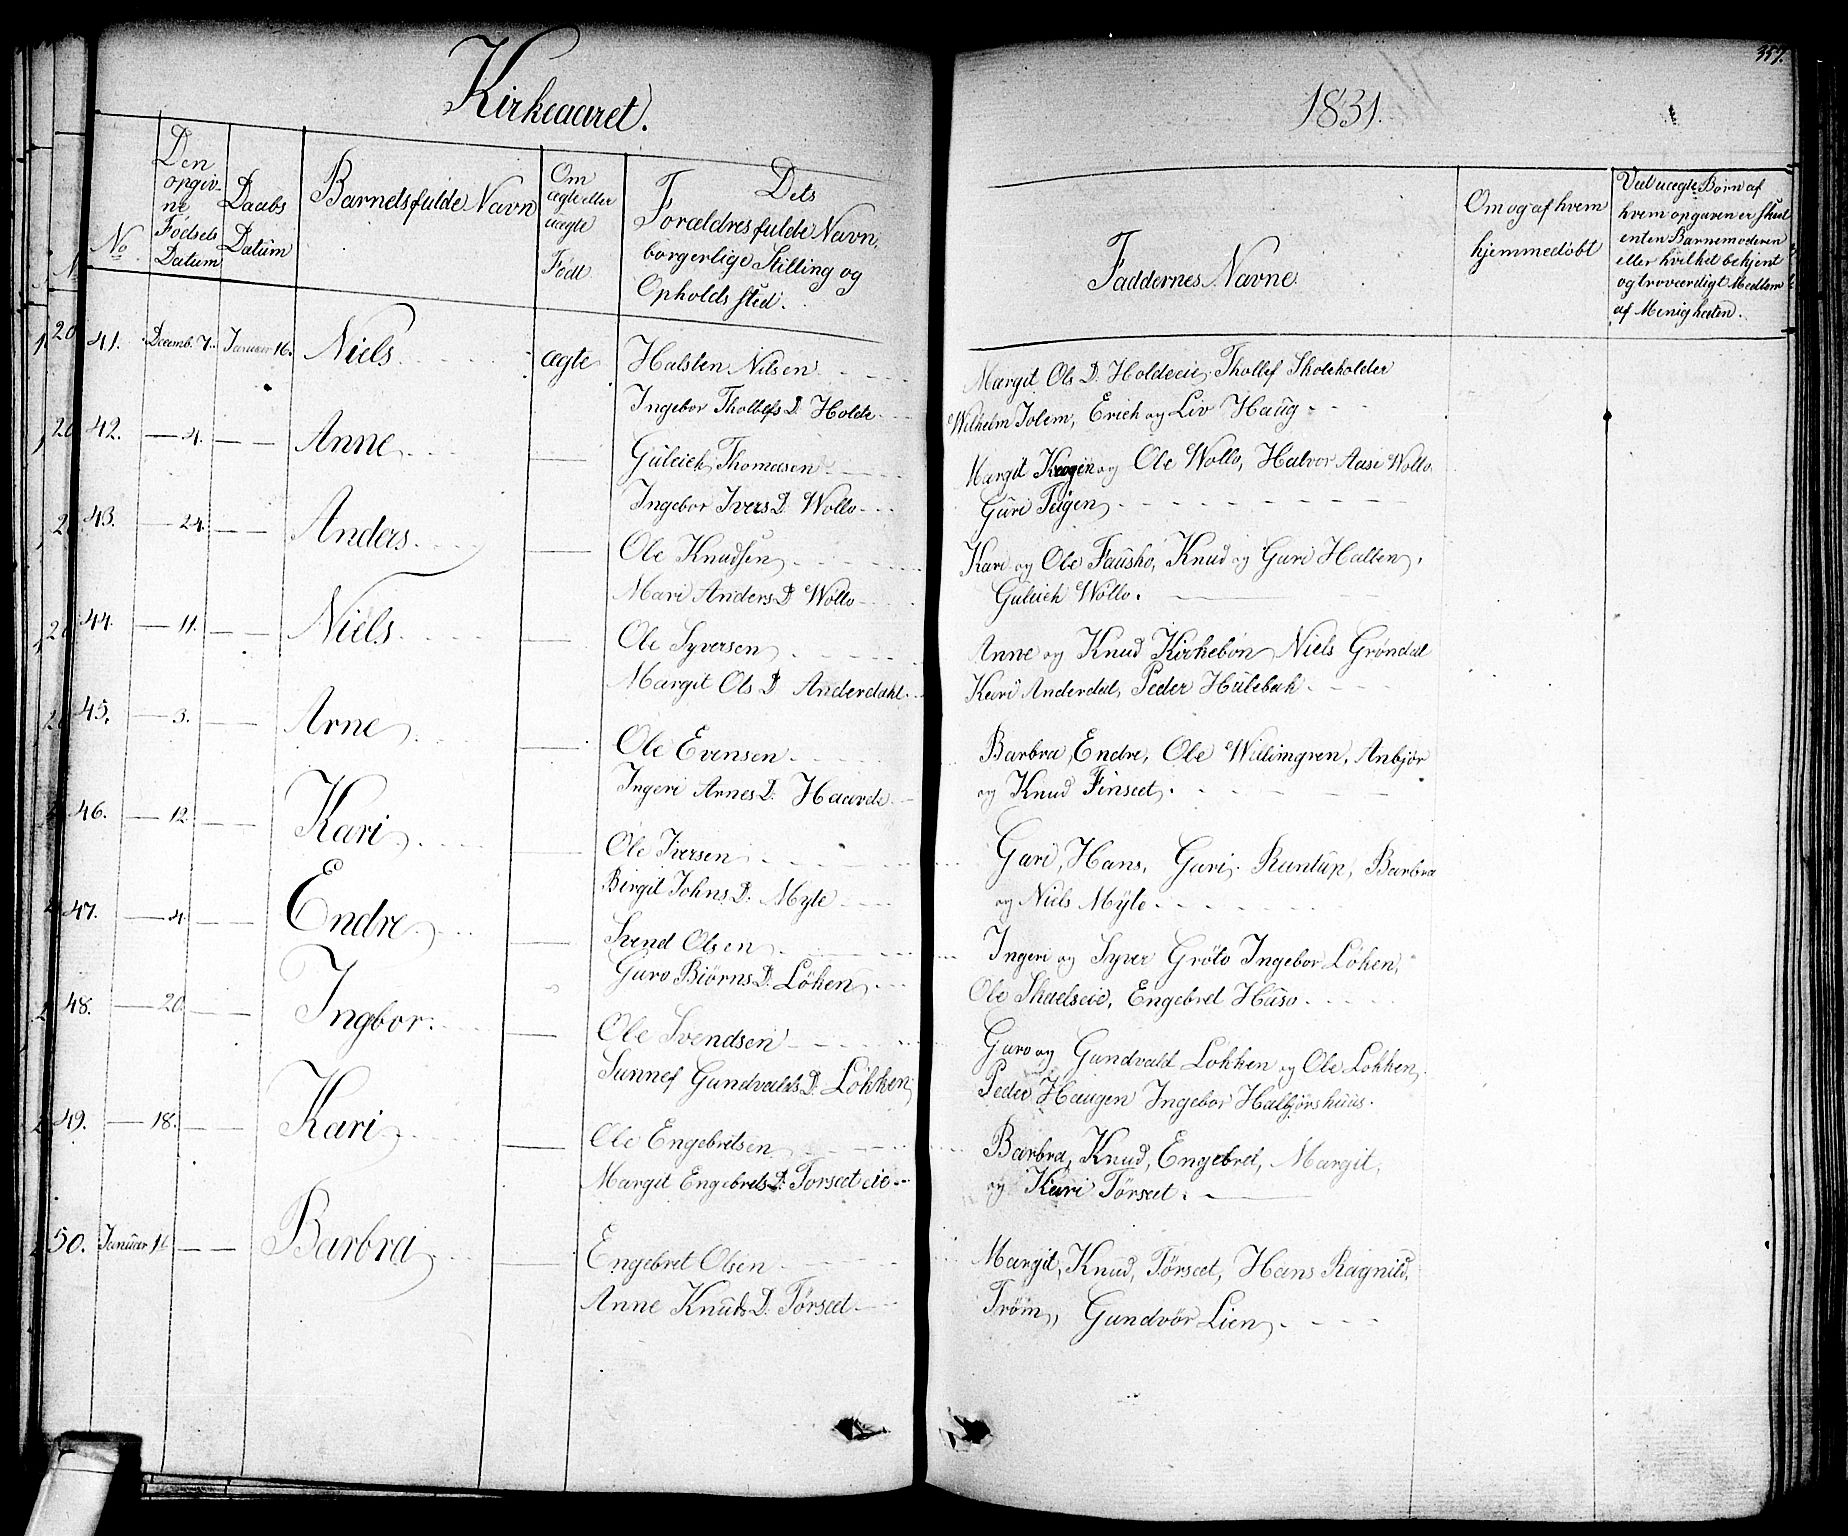 Kirkeaaret.
No
Den opgiv-
ne
Fødsels
Datum
Daabs
Datum
Barnets fulde Navn
Om
ægte eller
uægte
Født
Dets
Forældres fulde Navn,
borgerlige Stilling og
Opholds sted.
41. Decemb. 7. Januar 16. Niels. ægte Halsten Nilsen
Ingebor Thollefs D. Holde
42. — 4. — — Anne — Guleich Thomasen
Ingebor Ivers D. Wollo
43. — 24. — — Anders. — Ole Knudsen
Mari Anders D. Wollo
44. — 11. — — Niels. — Ole Syversen
Margit Ols D. Anderdahl
45. — 3. — — Arne — Ole Evensen
Ingeri Arnes D. Haarde
46. — 12. — — Kari — Ole Iversen
Birgit Johns D. Myle
47. — 4. — — Endre — Svend Olsen
Guro Biørns D. Løken
48. — 20. — — Ingbor. — Ole Svendsen
Sunnef Gundvalds D. Løkken
49. — 18. — — Kari — Ole Engebretsen
Margit Engebrets D. Torsæt eie
50. Januar — — Barbra — Engebret Olsen
Anne Knuds D. Tørsæt
357.
1831.
Faddernes Navne.
Om og af hvem
hjemmedøbt
Ved uægte Børn af
hvem opgaven er skeet
enten Barnemoderen
eller hvilket bekjent
og troværdigt Medlem
af Menigheden.
Margit Ols D. Holdeeie, Thollef Skoleholder
Wilhelm Tolem, Erich og Liv Haug
Margit og Ole Wollo, Halvor Aasi Wollo
Guri Teigen
Kari og Ole Fausko, Knud og Guri Halten,
Guleich Wollo.
Anne og Knud Kirkebøn Niels Grøndal
Kari Anderdal, Peder Hulebak
Barbra, Endre, Ole Willimgren, Anbjør
og Knud Finsæt
Guri, Hans, Guri Rantup, Barbra
og Niels Myle
Ingeri og Syver Grøto Ingebor Løken,
Ole Skaelseie, Engebret Huso
Guro og Gundvald Løkken og Ole Løkken,
Peder Haugen Ingebor Halbjørshuus.
Barbra, Knud, Engebret, Margit,
og Kari Tørsæt.
Margit, Knud, Tørsæt, Hans Ragnild,
Trøim, Gundvør Lien